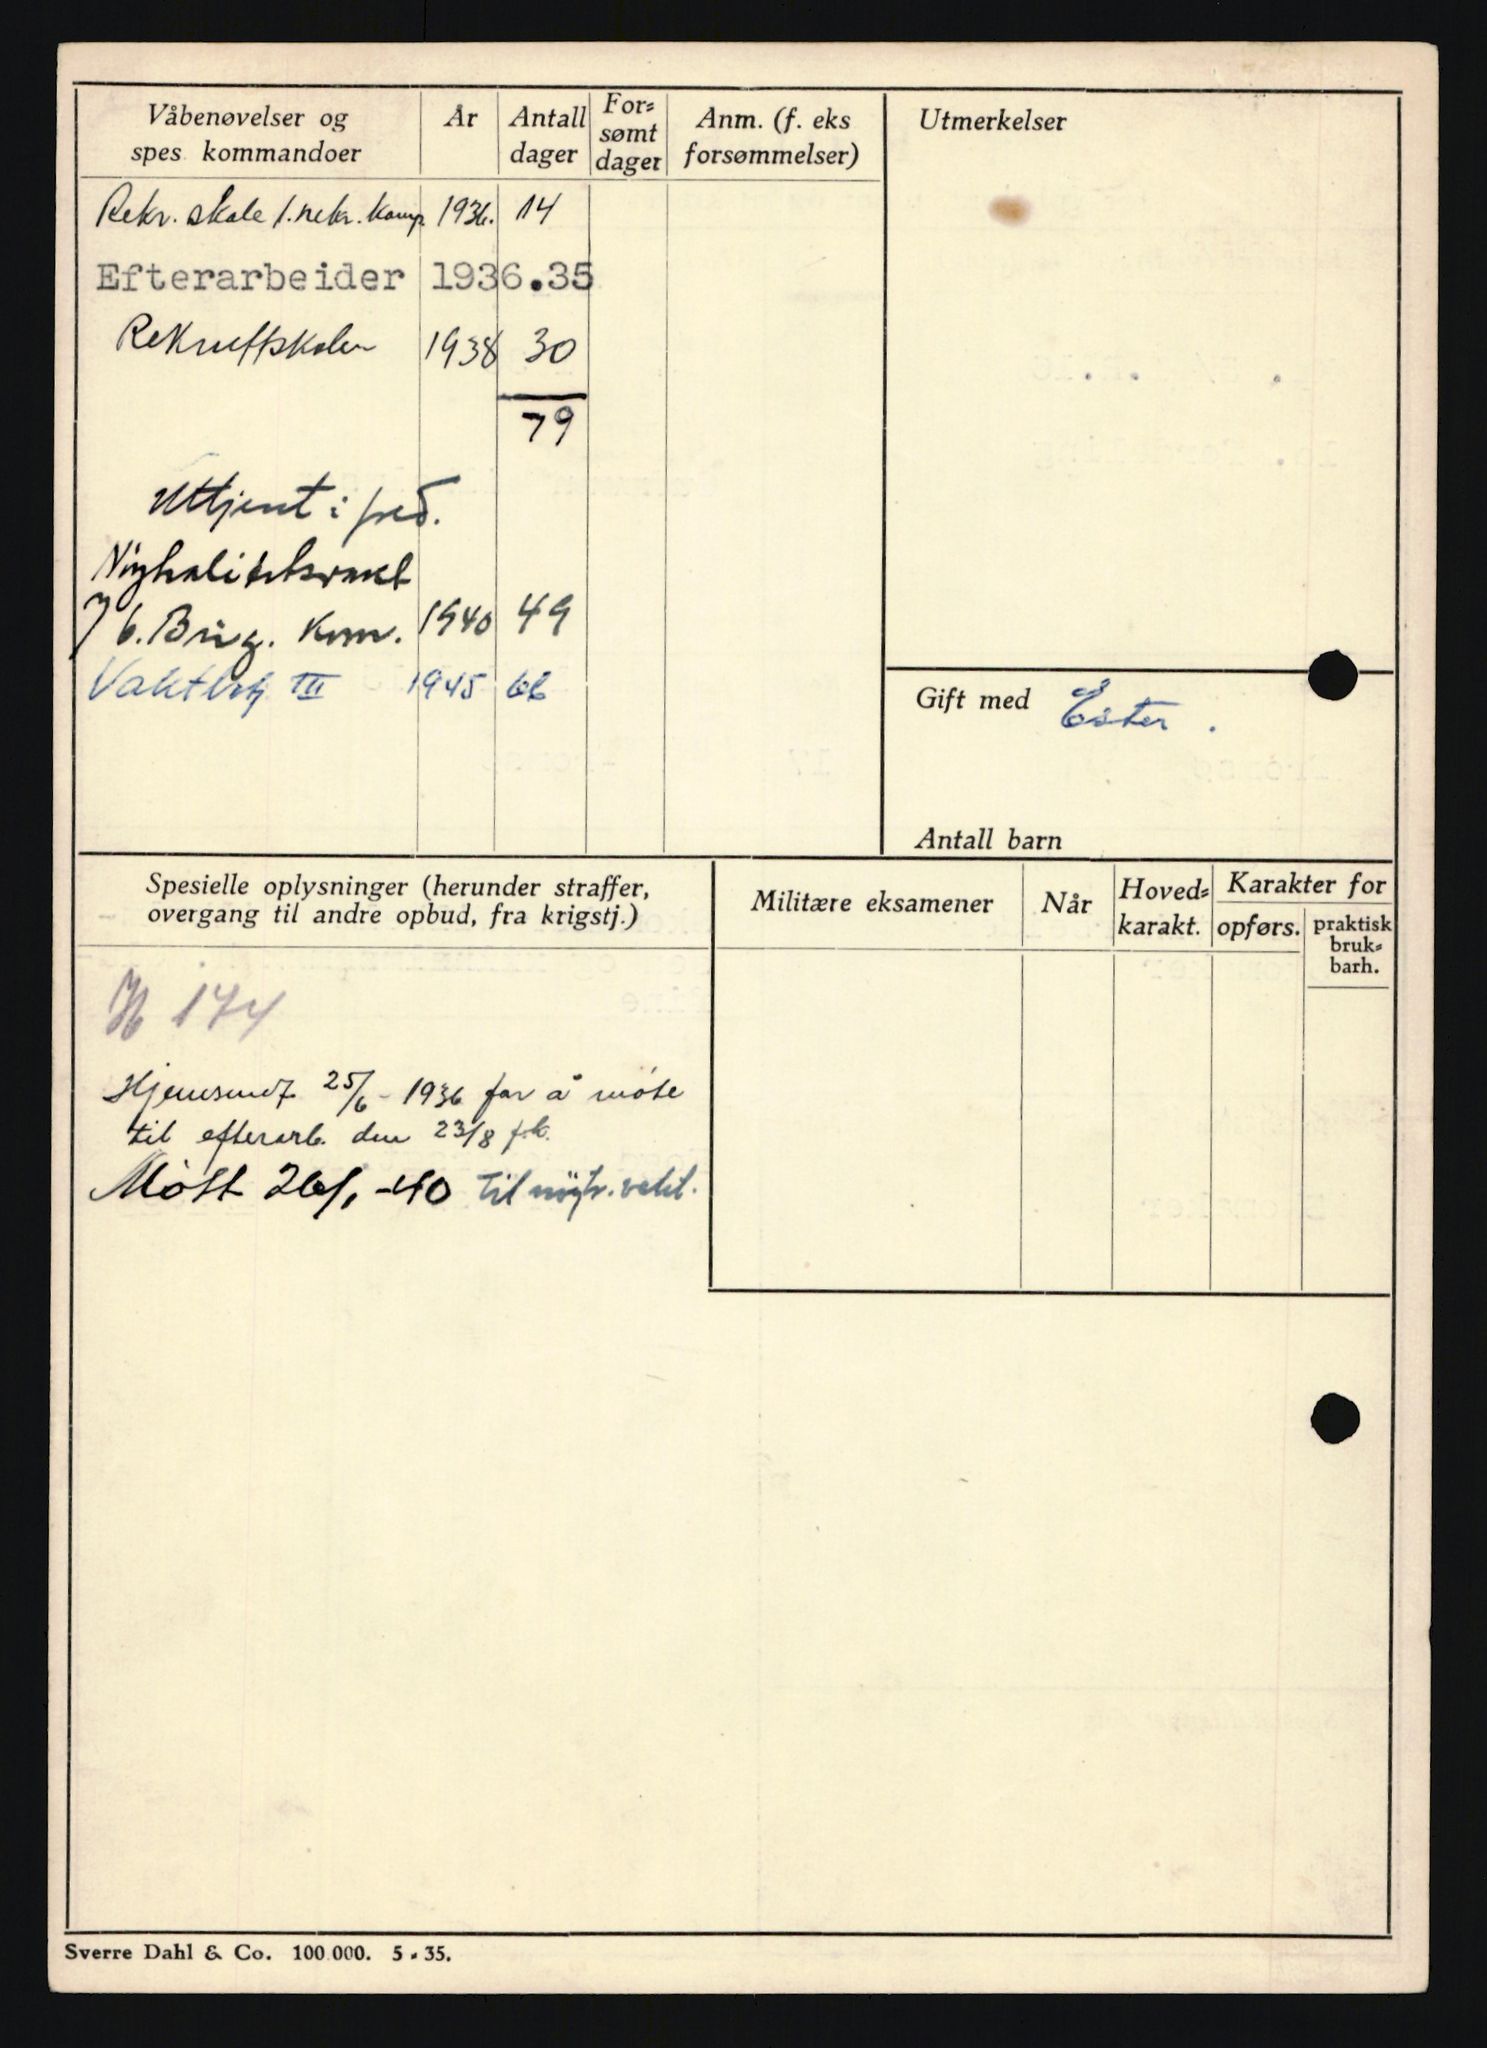 Våbenøvelser og
spes. kommandoer
År
Antall
dager
For-
sømt
dager
Anm. (f. eks
forsømmelser)
Utmerkelser
Rekr. skole 1. rekr. komp. 1936. 14
Efterarbeider 1936.35
Rekruttskolen 1938 30
79
Uttjent i fred.
Nøytralitetsvakt
J 6. Brig. Kom. 1940 49
Vaktbtj III 1945 66
Gift med Ester.
Antall barn
Spesielle oplysninger (herunder straffer,
overgang til andre opbud, fra krigstj.)
174
Hjemsendt 25/6 - 1936 for å møte
til efterarb. den 23/8 f.k.
Møtt 26/1 -40 til nøytr. vakt.
Militære eksamener
Når
Hoved-
karakt.
Karakter for
opførs.
praktisk
bruk-
barh.
Sverre Dahl & Co. 100.000. 5 - 35.